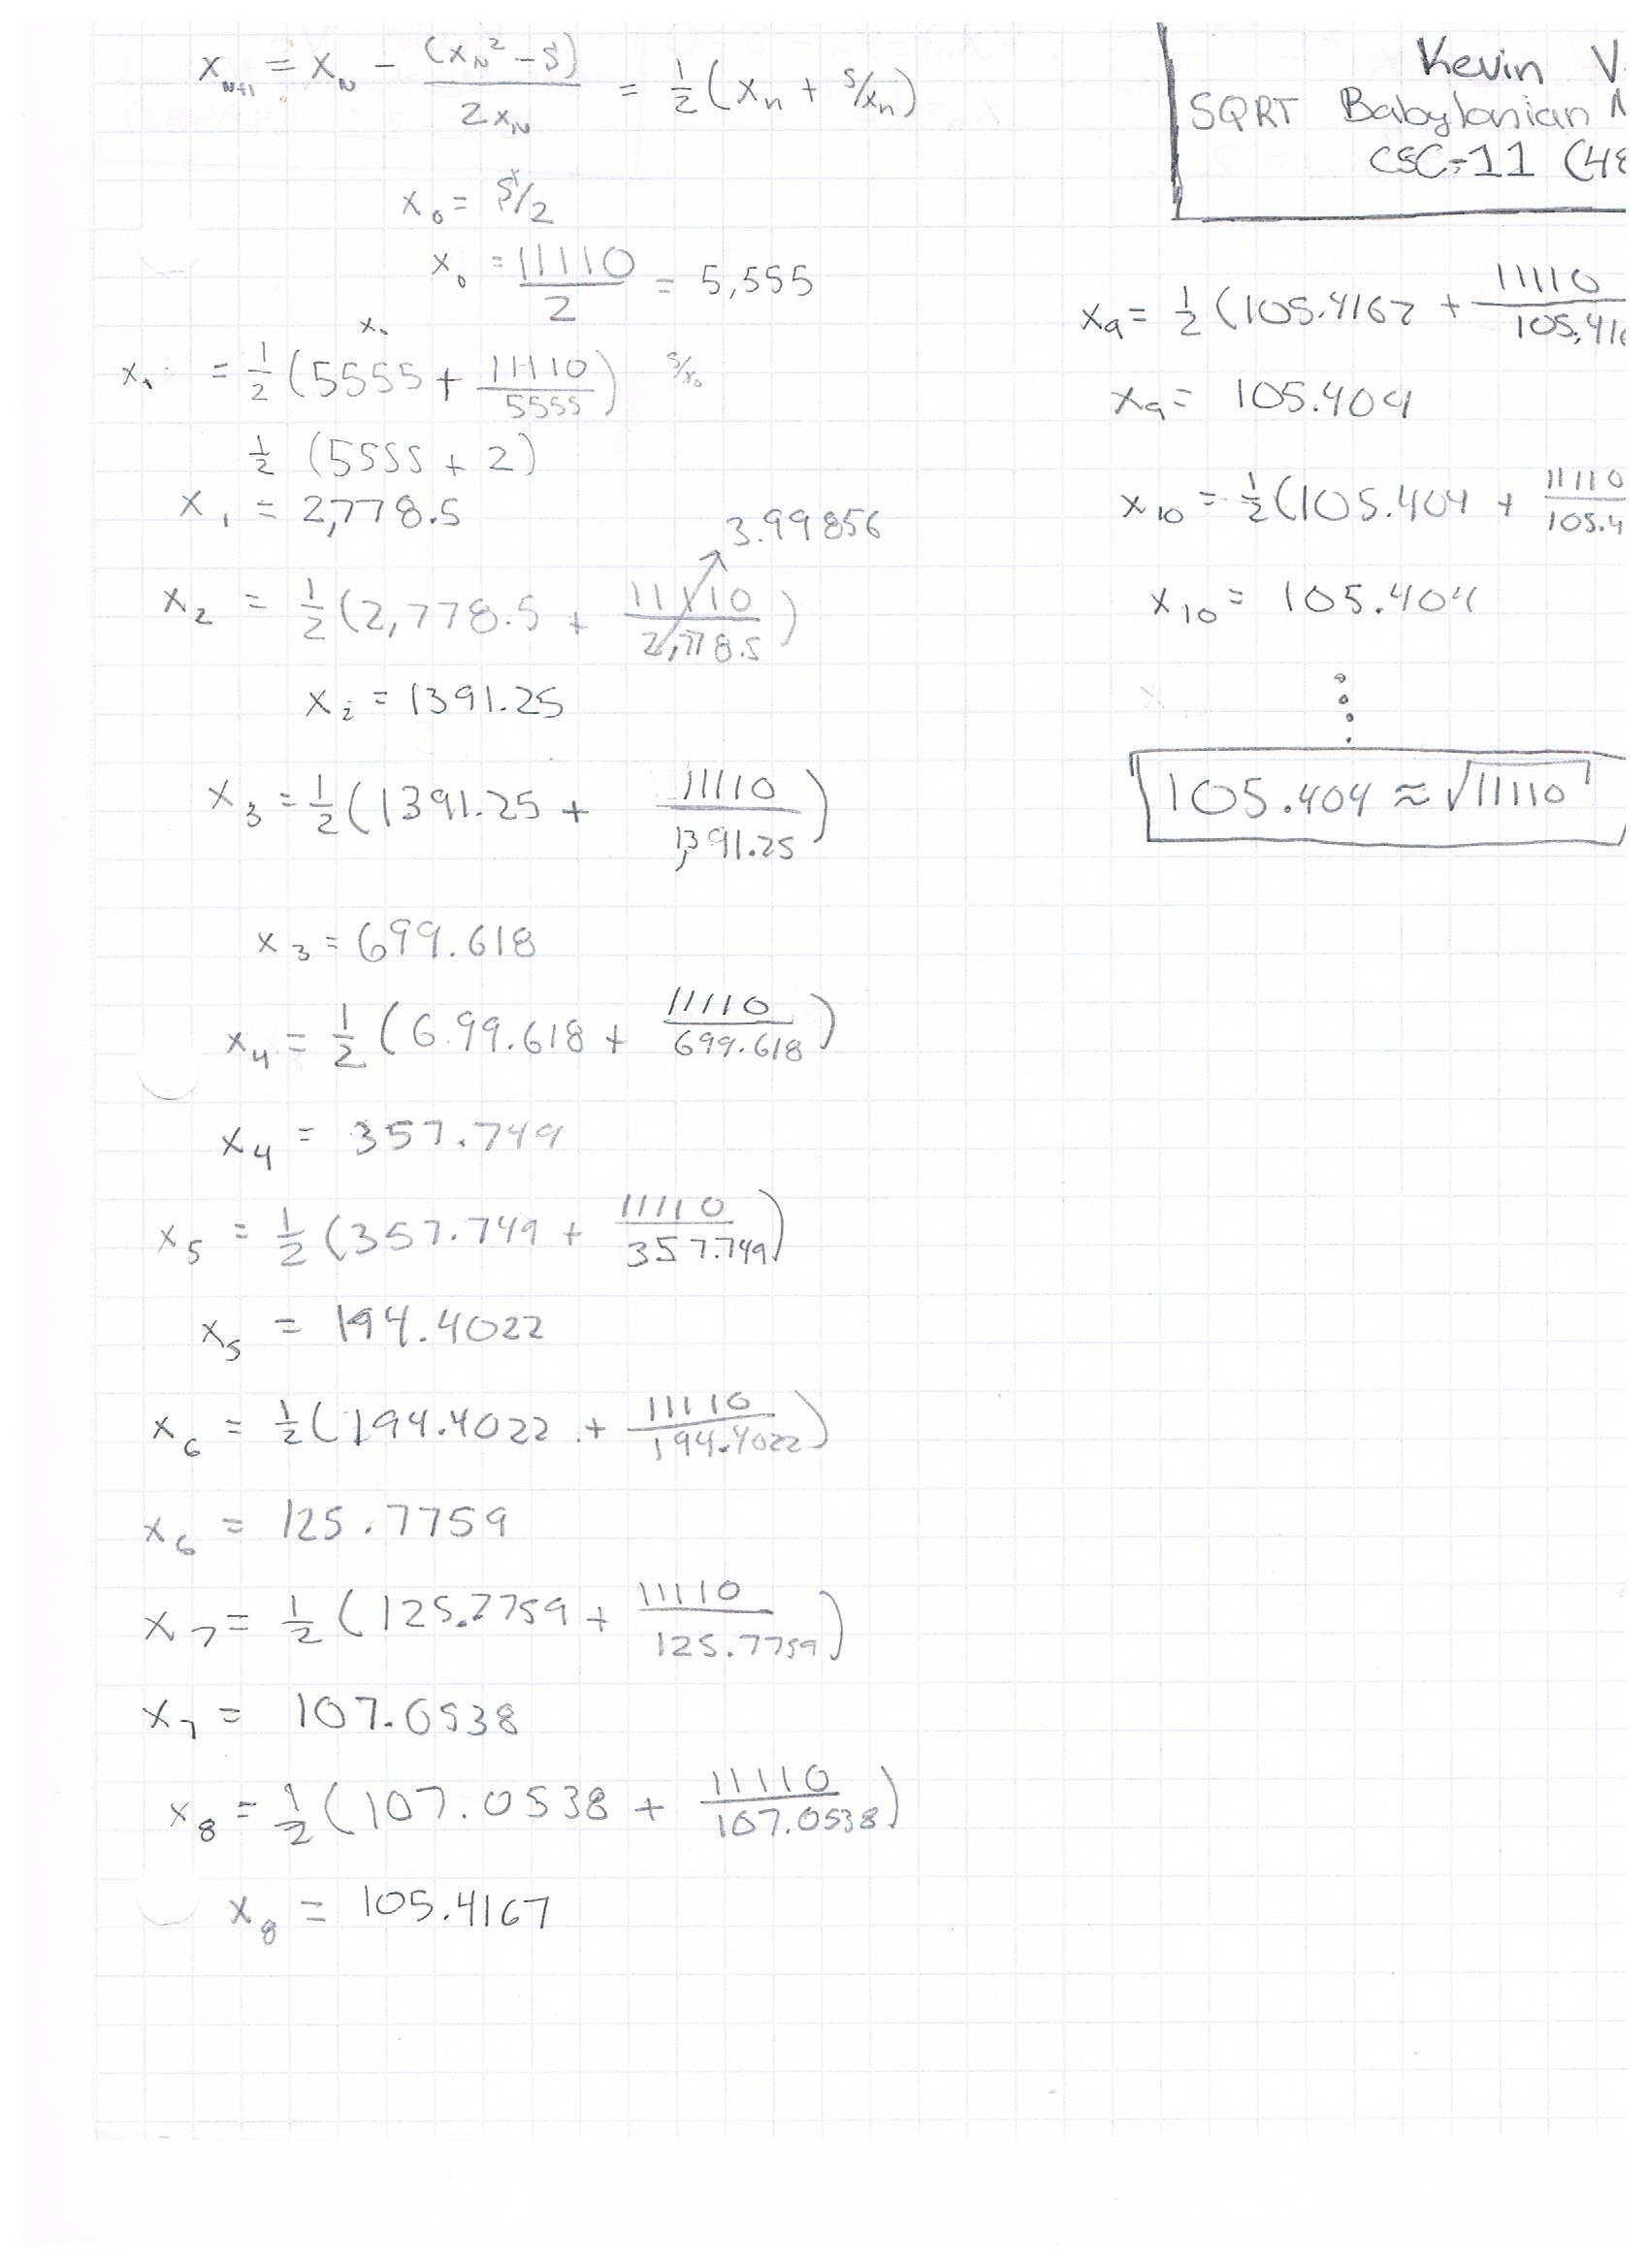 x_{N+1} = x_N - (x_N² - S) / 2x_N = 1/2 (x_n + S/x_n)
x_0 = S/2
x_0 = 11110 / 2 = 5,555
x_0
x_1 = 1/2 (5555 + 11110 / 5555) S/x_0
1/2 (5555 + 2)
x_1 = 2,778.5
3.99856
x_2 = 1/2 (2,778.5 + 11110 / 2,778.5)
x_2 = 1391.25
x_3 = 1/2 (1391.25 + 11110 / 1,391.25)
x_3 = 699.618
x_4 = 1/2 (6.99.618 + 11110 / 699.618)
x_4 = 357.749
x_5 = 1/2 (357.749 + 11110 / 357.749)
x_5 = 194.4022
x_6 = 1/2 (194.4022 + 11110 / 194.4022)
x_6 = 125.7759
x_7 = 1/2 (125.7759 + 11110 / 125.7759)
x_7 = 107.0538
x_8 = 1/2 (107.0538 + 11110 / 107.0538)
x_8 = 105.4167
Kevin V
SQRT Babylonian
CSC-11 (48
x_9 = 1/2 (105.4167 + 11110 / 105.416
x_9 = 105.404
x_10 = 1/2 (105.404 + 11110 / 105.4
x_10 = 105.404
105.404 ≈ √11110